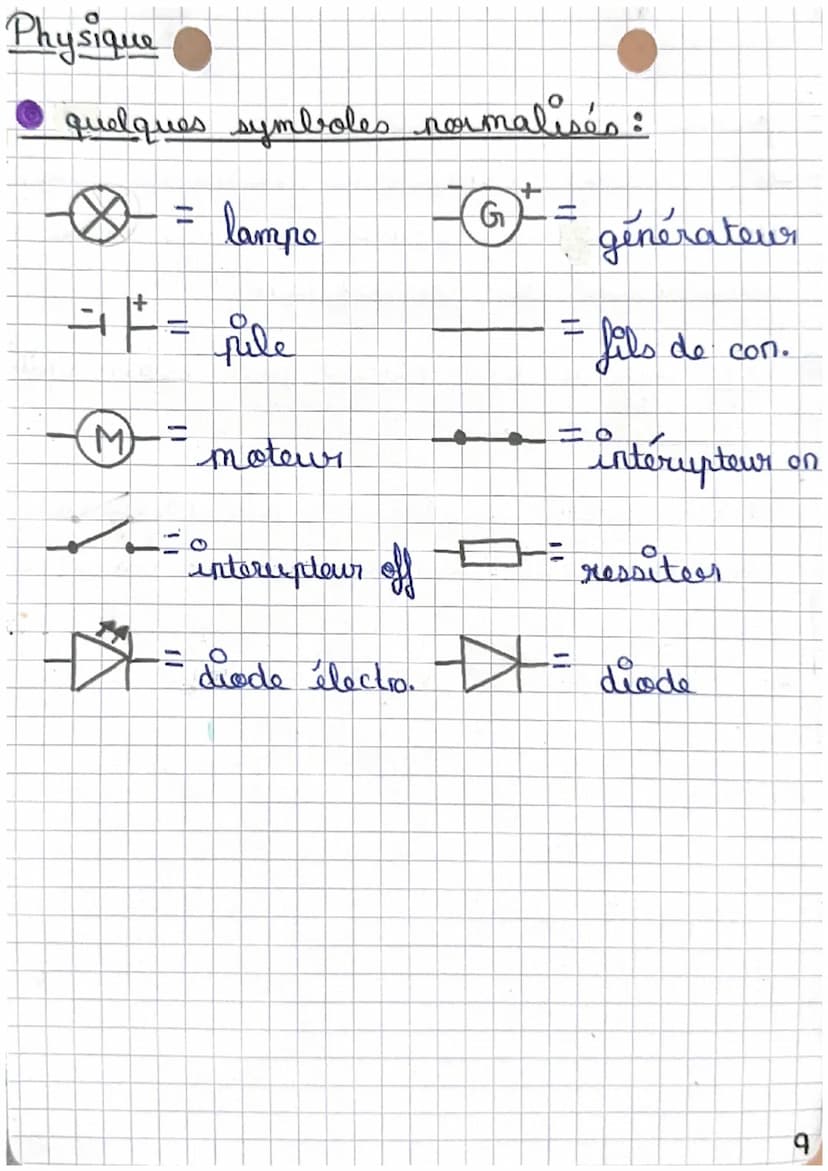 Physique
quelques symboles normalisés :
= lampe - G + = générateur
- + = pile = fils de con.
M = moteur = intérupteur on
= interupteur off = ressiteur
= diode électro. = diode
9